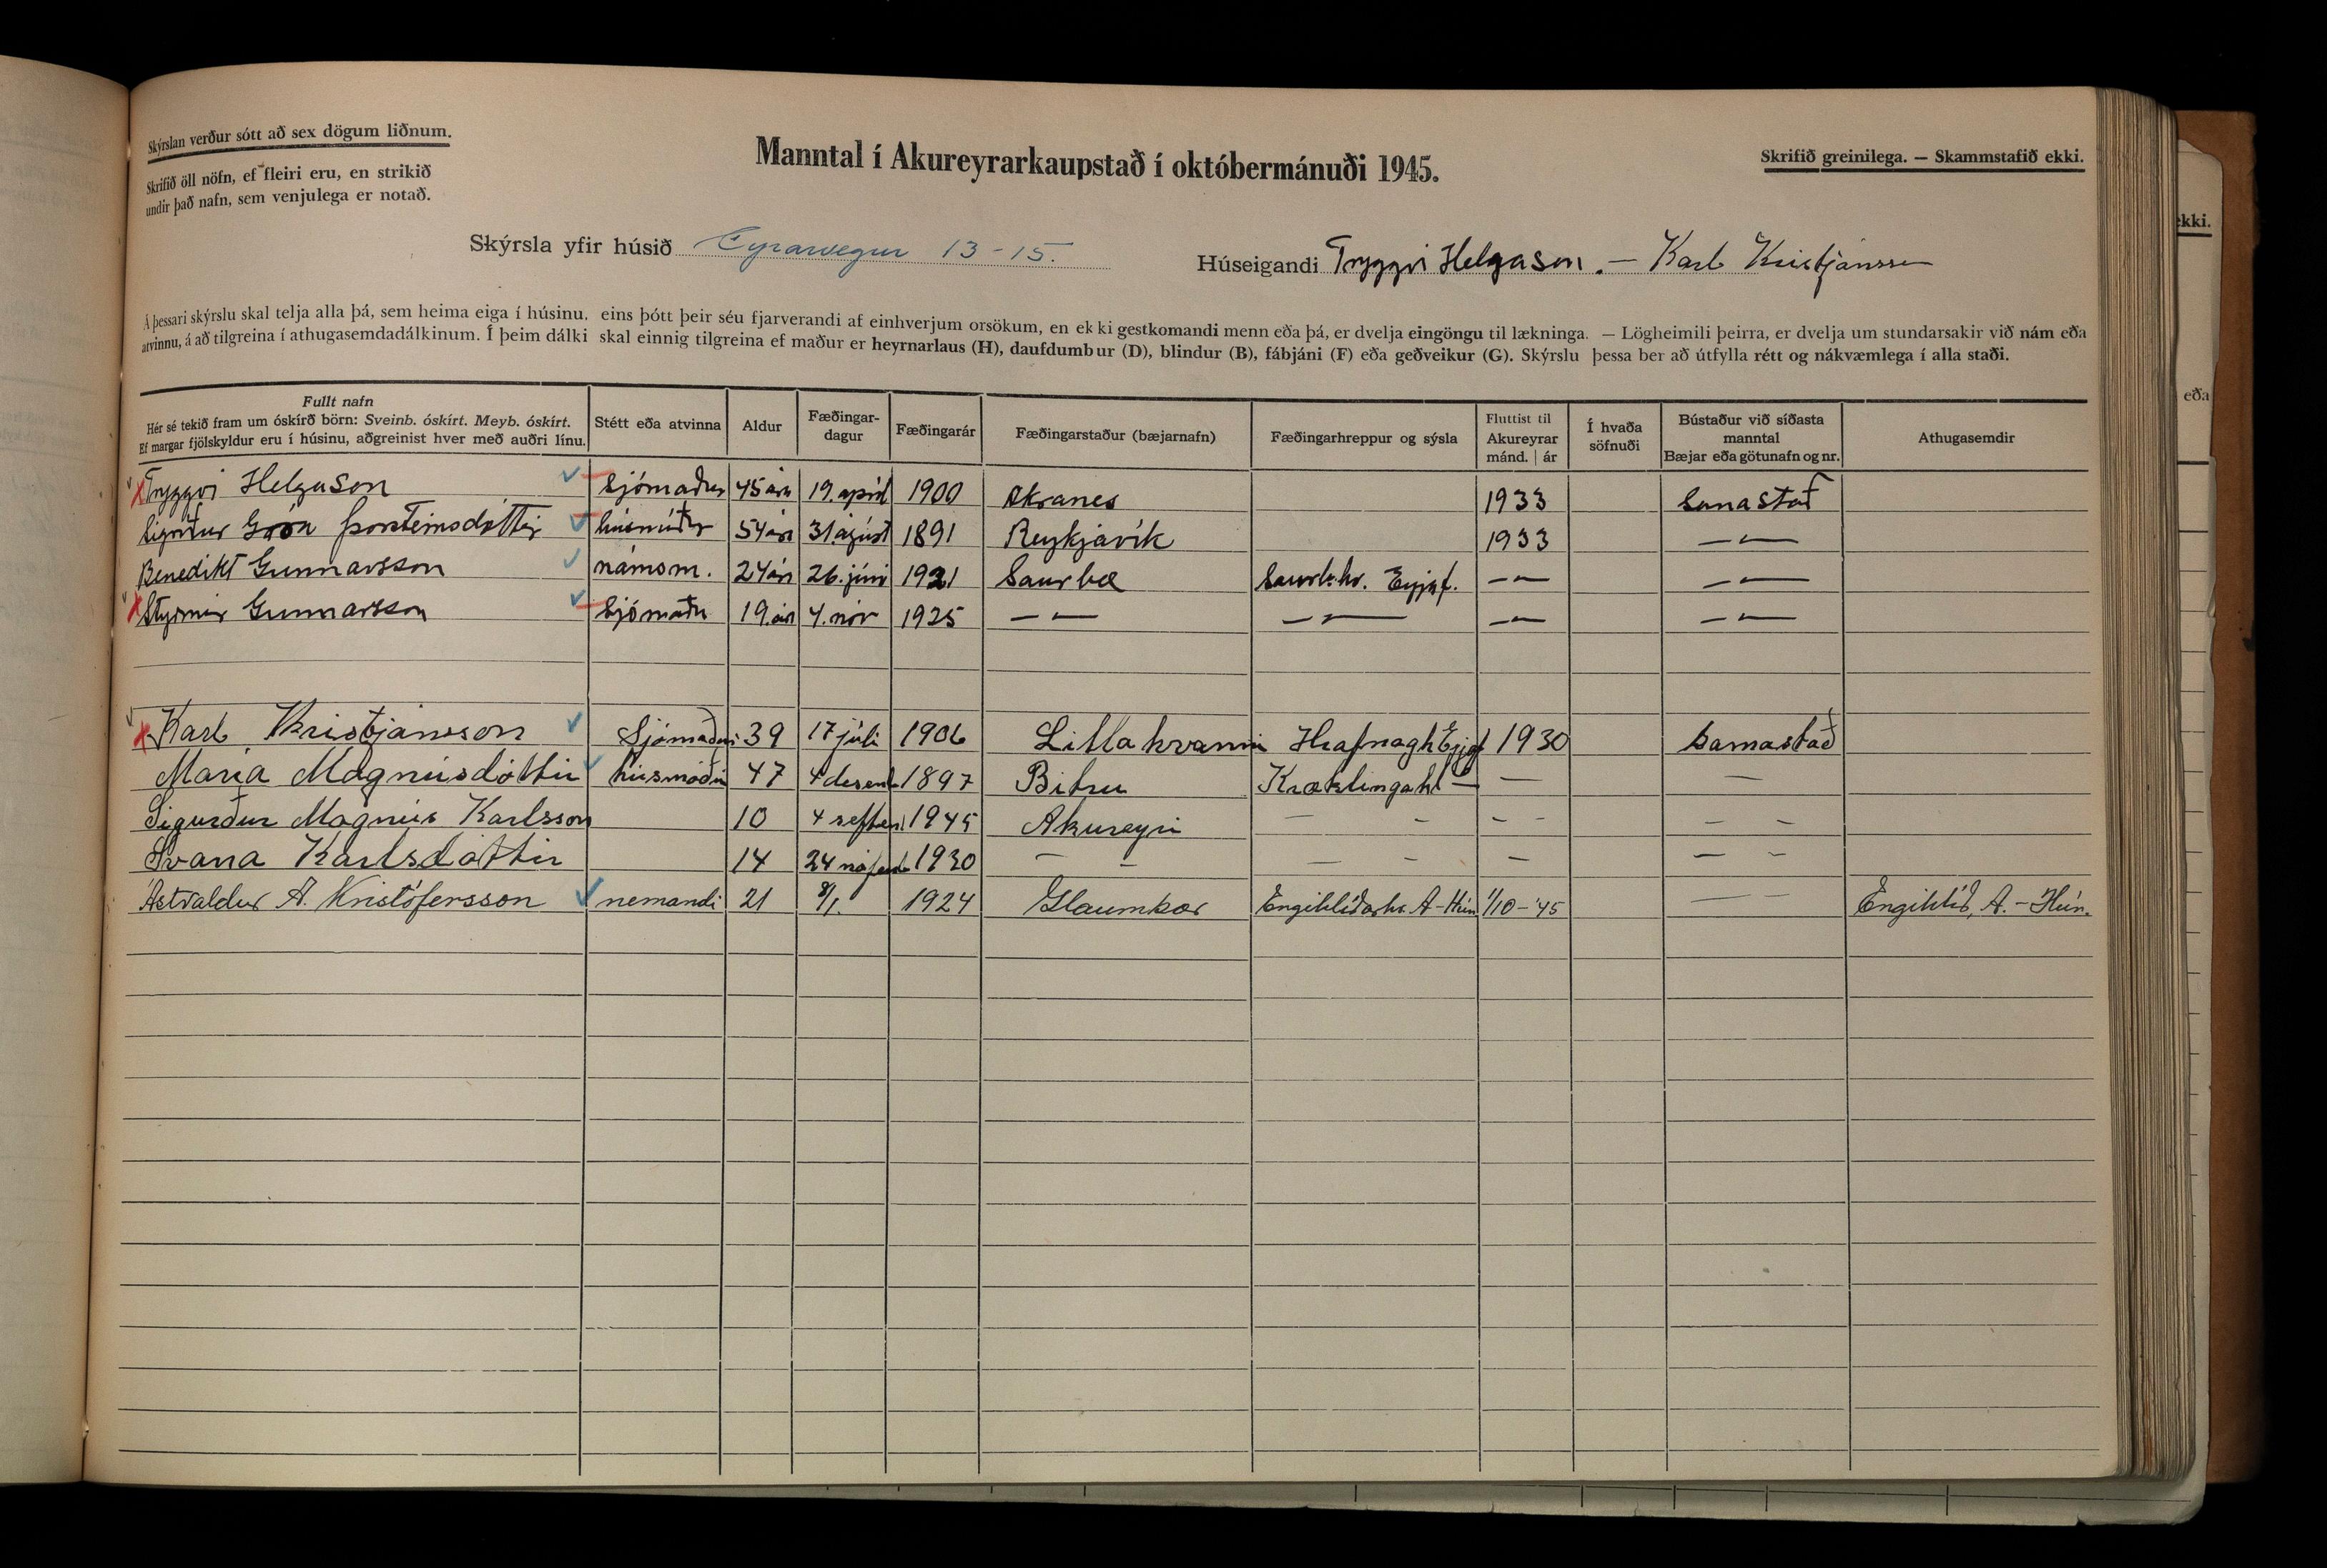 Skýrslan verður sótt að sex dögum liðnum.
Skrifið öll nöfn, ef fleiri eru, en strikið
undir það nafn, sem venjulega er notað.
Manntal í Akureyrarkaupstað í októbermánuði 1945.
Skrifið greinilega. — Skammstafið ekki.
Skýrsla yfir húsið Eyrarvegur 13-15.
Húseigandi Tryggvi Helgason. — Karl Kristjánsson
Á þessari skýrslu skal telja alla þá, sem heima eiga í húsinu, eins þótt þeir séu fjarverandi af einhverjum orsökum, en ekki gestkomandi menn eða þá, er dvelja eingöngu til lækninga. — Lögheimili þeirra, er dvelja um stundarsakir við nám eða
atvinnu, á að tilgreina í athugasemdadálkinum. Í þeim dálki skal einnig tilgreina ef maður er heyrnarlaus (H), daufdumbur (D), blindur (B), fábjáni (F) eða geðveikur (G). Skýrslu þessa ber að útfylla rétt og nákvæmlega í alla staði.
Fullt nafn
Hér sé tekið fram um óskírð börn: Sveinb. óskírt. Meyb. óskírt.
Ef margar fjölskyldur eru í húsinu, aðgreinist hver með auðri línu.
Stétt eða atvinna
Aldur
Fæðingar-
dagur
Fæðingarár
Fæðingarstaður (bæjarnafn)
Fæðingarhreppur og sýsla
Fluttist til
Akureyrar
mánd. | ár
Í hvaða
söfnuði
Bústaður við síðasta
manntal
Bæjar eða götunafn og nr.
Athugasemdir
Tryggvi Helgason Sjómaður 45 ára 19. apríl 1900 Akranes 1933 Samastað
Sigríður Gróa Þorsteinsdóttir húsmóðir 54 ára 31. ágúst 1891 Reykjavík 1933 — —
Benedikt Gunnarsson námsm. 24 ára 26. júní 1921 Saurbæ Saurb.hr. Eyjaf. — — — —
Styrmir Gunnarsson Sjómaðu 19. ára 4. nóv 1925 — — — — — — — —
Karl Kristjánsson Sjómaður 39 17 júli 1906 Litlahvammi Hrafnagh Eyjaf 1930 Samastað
María Magnúsdóttir húsmóðir 47 4 desemb 1897 Bitru Kræklingahl — — —
Sigurður Magnús Karlsson 10 4 septem 1945 Akureyri — - - - - -
Svana Karlsdóttir 14 24 nófemb 1930 — - — - — — -
Ástvaldur A. Kristófersson nemandi 21 8/1. 1924 Glaumbær Engihlíðarhr. A-Hún 1/10-'45 — Engihlíð, A.-Hún.
ekki.
eða